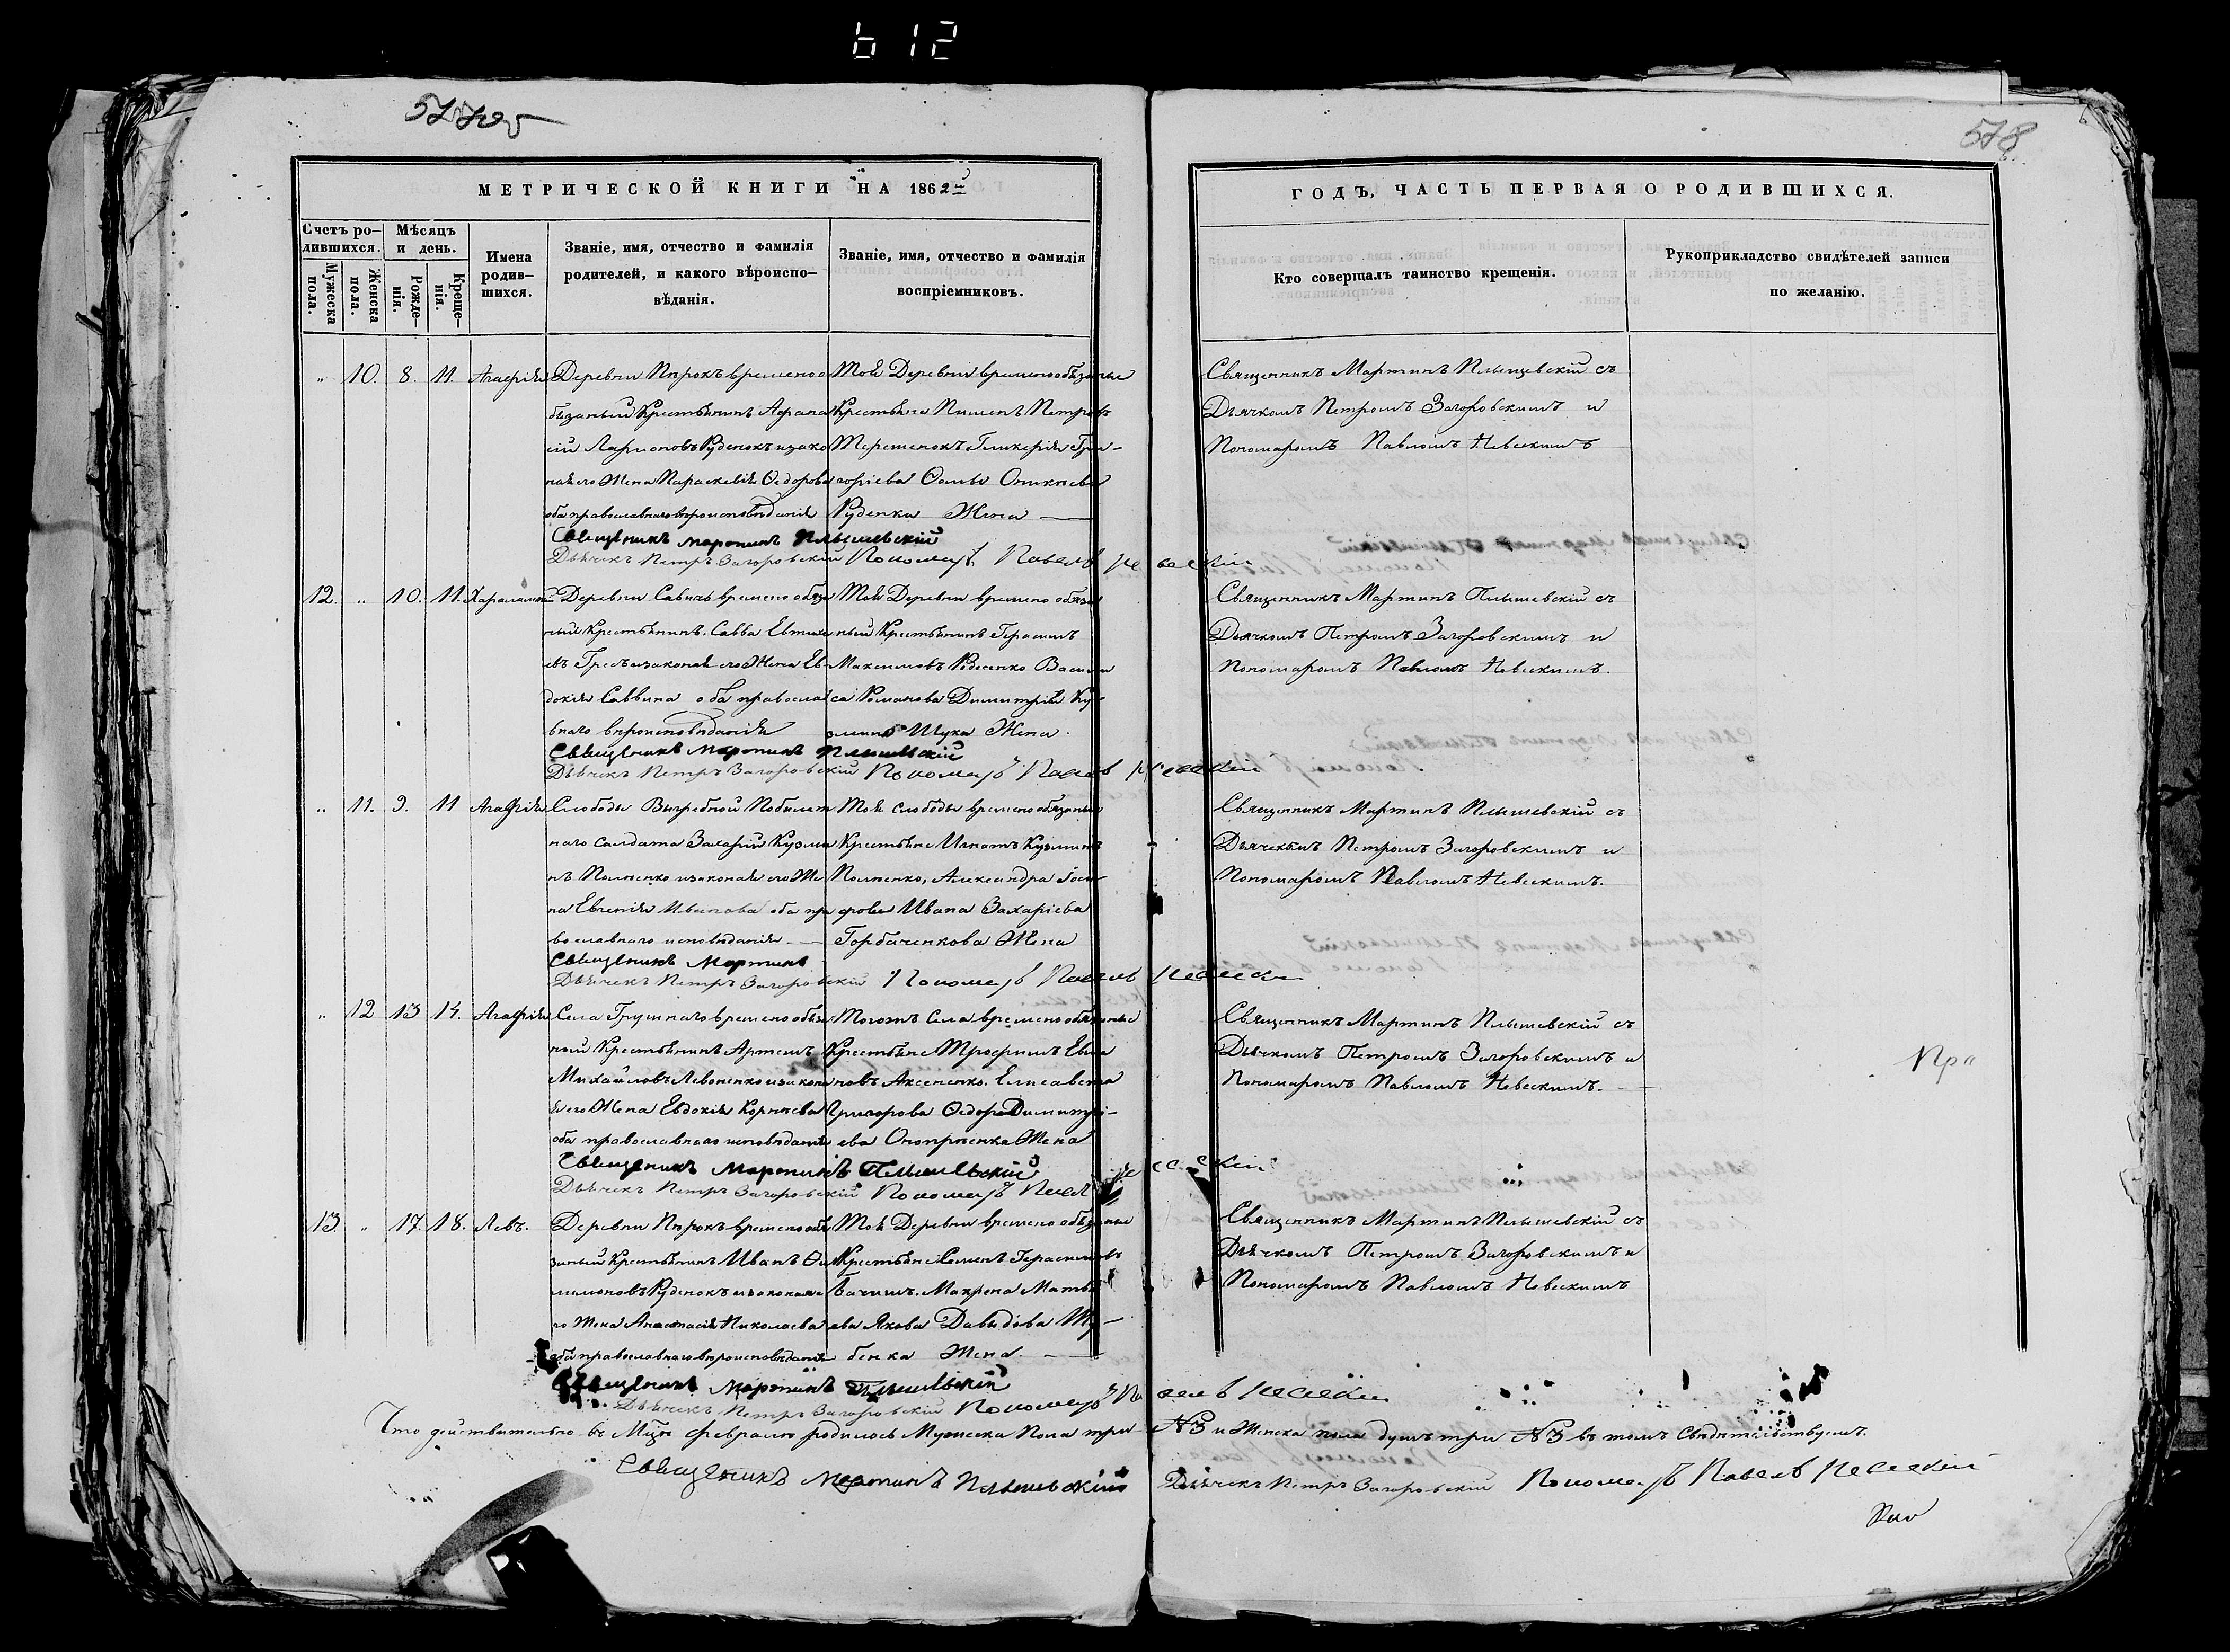 612
578
МЕТРИЧЕСКОЙ КНИГИ НА 1862й
ГОДЪ, ЧАСТЬ ПЕРВАЯ О РОДИВШИХСЯ.
Счетъ ро-
дившихся.
Мужеска
пола.
Женска
пола.
Мѣсяцъ
и день.
Рожде-
нія.
Креще-
нія.
Имена
родив-
шихся.
Званіе, имя, отчество и фамилія
родителей, и какого вѣроиспо-
вѣданія.
Званіе, имя, отчество и фамилія
воспріемниковъ.
Кто совершалъ таинство крещенія.
Рукоприкладство свидѣтелей записи
по желанію.
" 10. 8. 11. Агафія
Деревни временно о
бязаный Крестьянинъ Афана
сій Ларіоновъ Руденокъ и зако
ная его Жена Параскевія Ѳедорова
оба православнаго вѣроисповѣданія
Той Деревни временно обязаные
Крестьяне Пименъ Петровъ
Терешенокъ Гликерія Гри-
горіева
Руденка Жена
Священникъ Мартинъ Плышевскій съ
Дьячкомъ Петромъ Загоровскимъ и
Пономаромъ Павломъ Невескимъ
Священикъ Мартинъ Плышевскій
Дьячекъ Петръ Загоровскій Пономарь Павелъ
12. " 10. 11. Харалампій
Деревни Савичъ временно обяза
ный Крестьянинъ Савва Евтихі
евъ и законая его Жена Ев
докія Саввина оба правосла
внаго вѣроисповѣданія
Той Деревни временно обяза
ный Крестьянинъ Герасимъ
Максимовъ Васили
са Романова Димитрія Ку
змина Щука Жена.
Священникъ Мартинъ Плышевскій съ
Дьячкомъ Петромъ Загоровскимъ и
Пономаромъ Павломъ Невескимъ.
Священикъ Мартинъ Плышевскій
Дьячекъ Петръ Загоровскій Пономарь Павелъ
" 11. 9. 11 Агафія
Слободы Выгребной По билет
наго солдата Захарій Кузми
нъ Полпенко и законая его Же
на Евгенія Иванова оба пра
вославнаго исповѣданія
Той слободы временно обязаные
Крестьяне Игнатъ Кузминъ
Полпенко, Александра Іоси
фова Ивана Захаріева
Горбаченкова Жена
Священникъ Мартинъ Плышевскій съ
Дьячекомъ Петромъ Загоровскимъ и
Пономаромъ Павломъ Невескимъ.
Священикъ Мартинъ
Дьячекъ Петръ Загоровскій Пономарь Павелъ
" 12 13 14. Агафія
Села временно обяза
ный Крестьянинъ Артемъ
Михайловъ Левоненко и закона
я его Жена Евдокія Корнѣева
оба православнаго исповѣданія
Тогожъ Села временно обязаные
Крестьяне Трофимъ
Аксененко. Елисавета
Григорова Ѳедора Димитрі-
ева Оноприенка Жена
Священникъ Мартинъ Плышевскій съ
Дьячкомъ Петромъ Загоровскимъ и
Пономаромъ Павломъ Невескимъ.
Пра
Священикъ Мартинъ Плышевскій
Дьячекъ Петръ Загоровскій Пономарь Павелъ
13 " 17. 18. Левъ.
Деревни временно обя
заный Крестьянинъ Иванъ Фи
лимоновъ Руденокъ и законая е
го Жена Анастасія Николаева
оба православнаго вѣроисповѣданія
Той Деревни временно обязаные
Крестьяне Семенъ Герасимовъ
Бачишъ. Макрена Матвѣ
ева Якова Давыдова Шу-
бенка Жена.
Священникъ Мартинъ Плышевскій съ
Дьячкомъ Петромъ Загоровскимъ и
Пономаромъ Павломъ Невескимъ
Священикъ Мартинъ Плышевскій
Дьячекъ Петръ Загоровскій Пономарь Павелъ
Что действительно въ Мцѣ февралю родилось Мужеска Пола три №3 и Женска пола душъ три №3 въ томъ Свидѣтельствуемъ.
Священикъ Мартинъ Плышевскій Дьячекъ Петръ Загоровскій Пономарь Павелъ